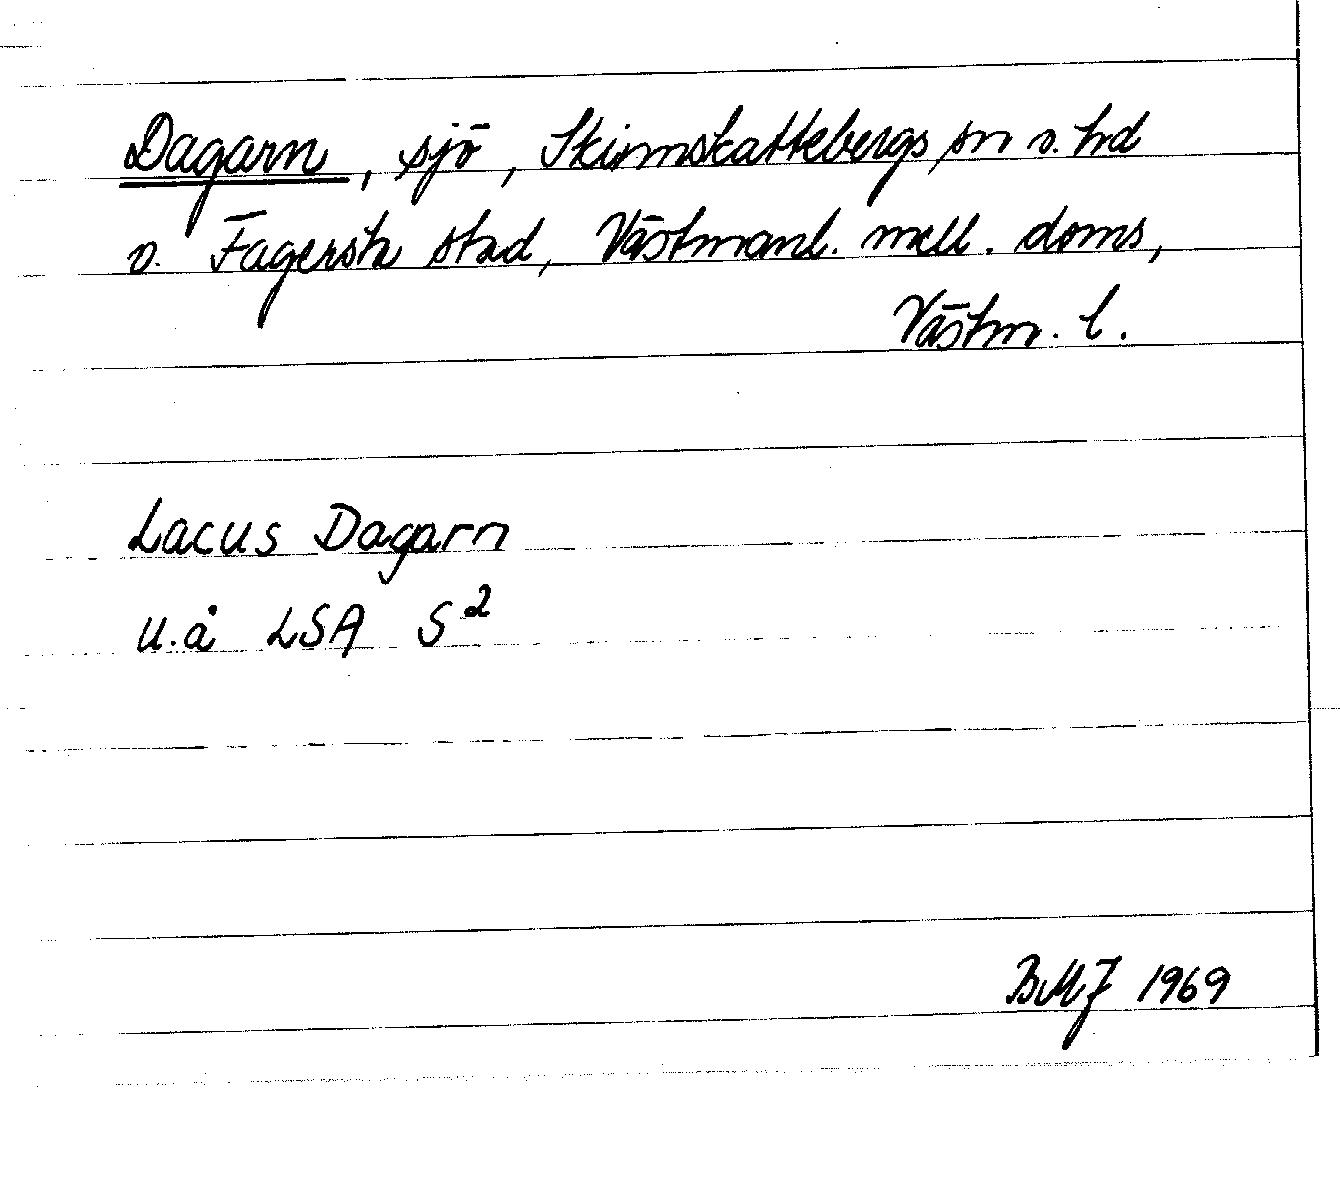 Dagarn, sjö, Skinnskattebergs sn o. hd
o. Fagersta stad, Västmanl. mell. doms,
Västm. l.
Lacus Dagarn
u.å LSA S²
BMJ 1969